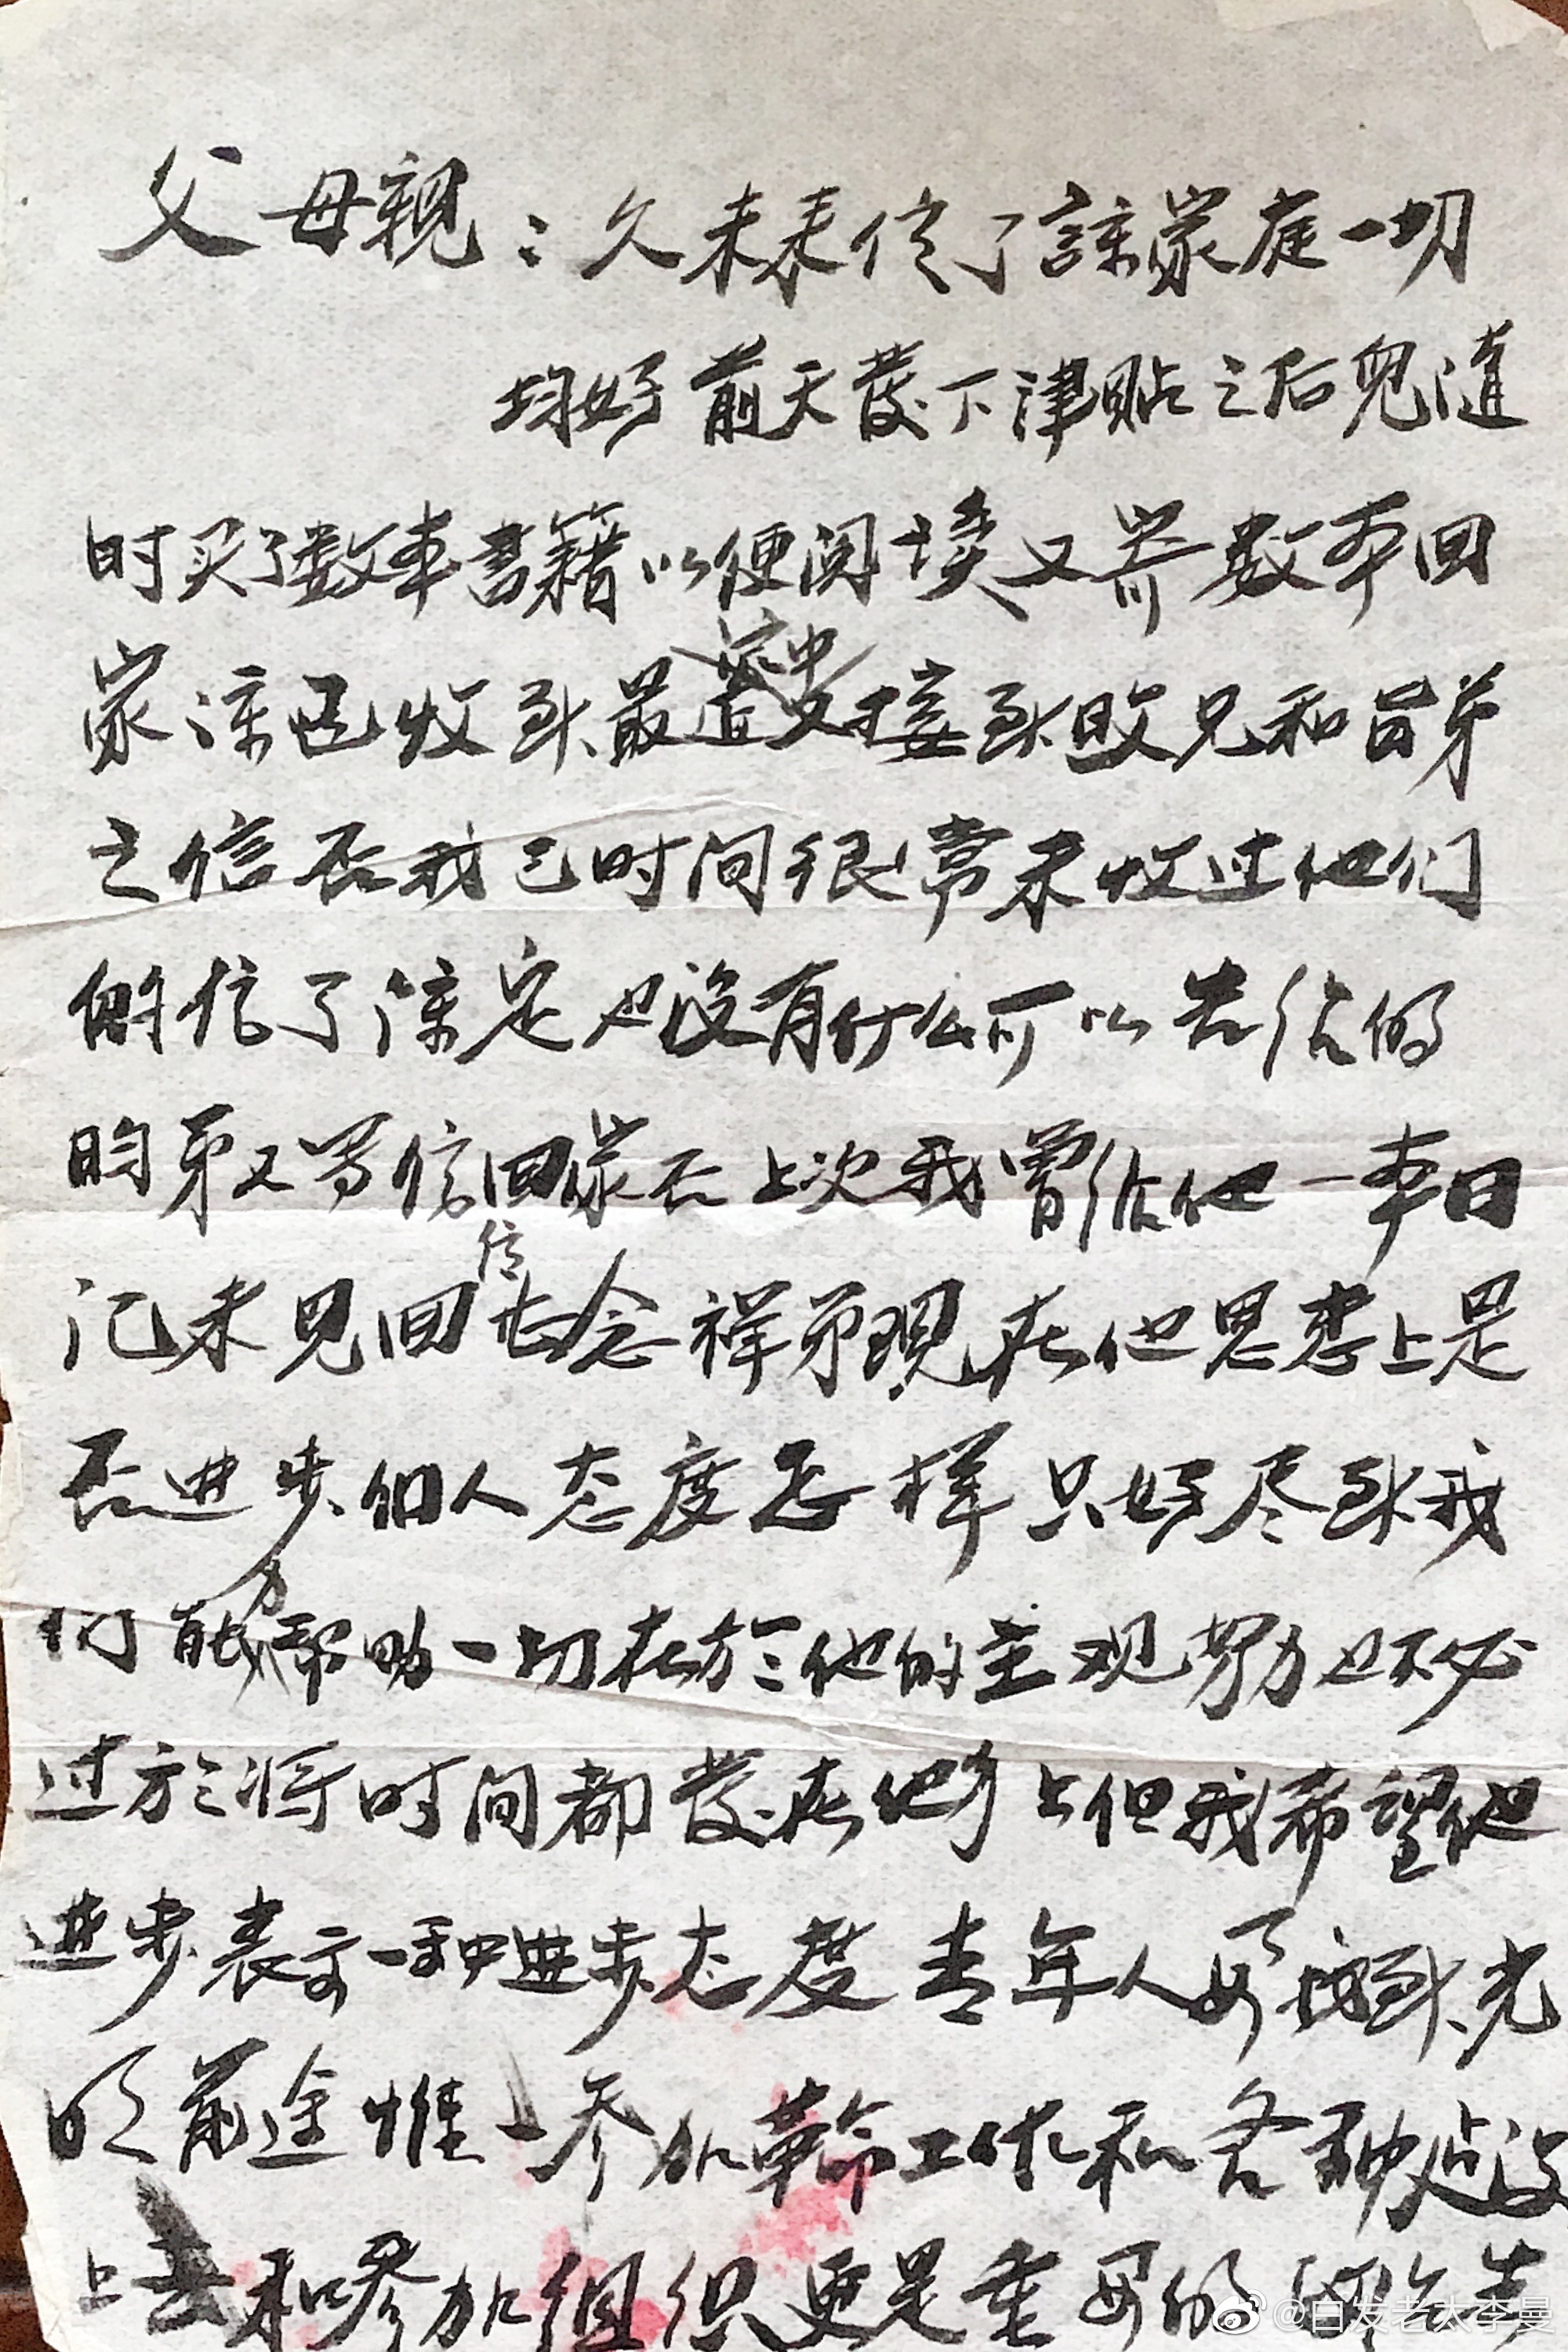 父母親：久未奉信了諒家庭一切
均好前天發下津貼之后兒随
时买了数本書籍以便阅读又寄数本回
家谅已收到最近家中又接到旼兄和昌弟
之信否我已时间很常未收过他们
的信了谅定也没有什么可以告给的
昀弟又写信回家否上次我曾给他一本日
记未见回信 念祥弟现在他思想上是
否进步個人态度怎样只好尽到我
们能力帮助一切在於他的主观努力也不必
过於将时间都發在他身上但我希望他
进步表示一种进步态度青年人要找到光
明前途惟一参加革命工作和各种建设
上去和参加组织更是重要的
@白发老太李曼